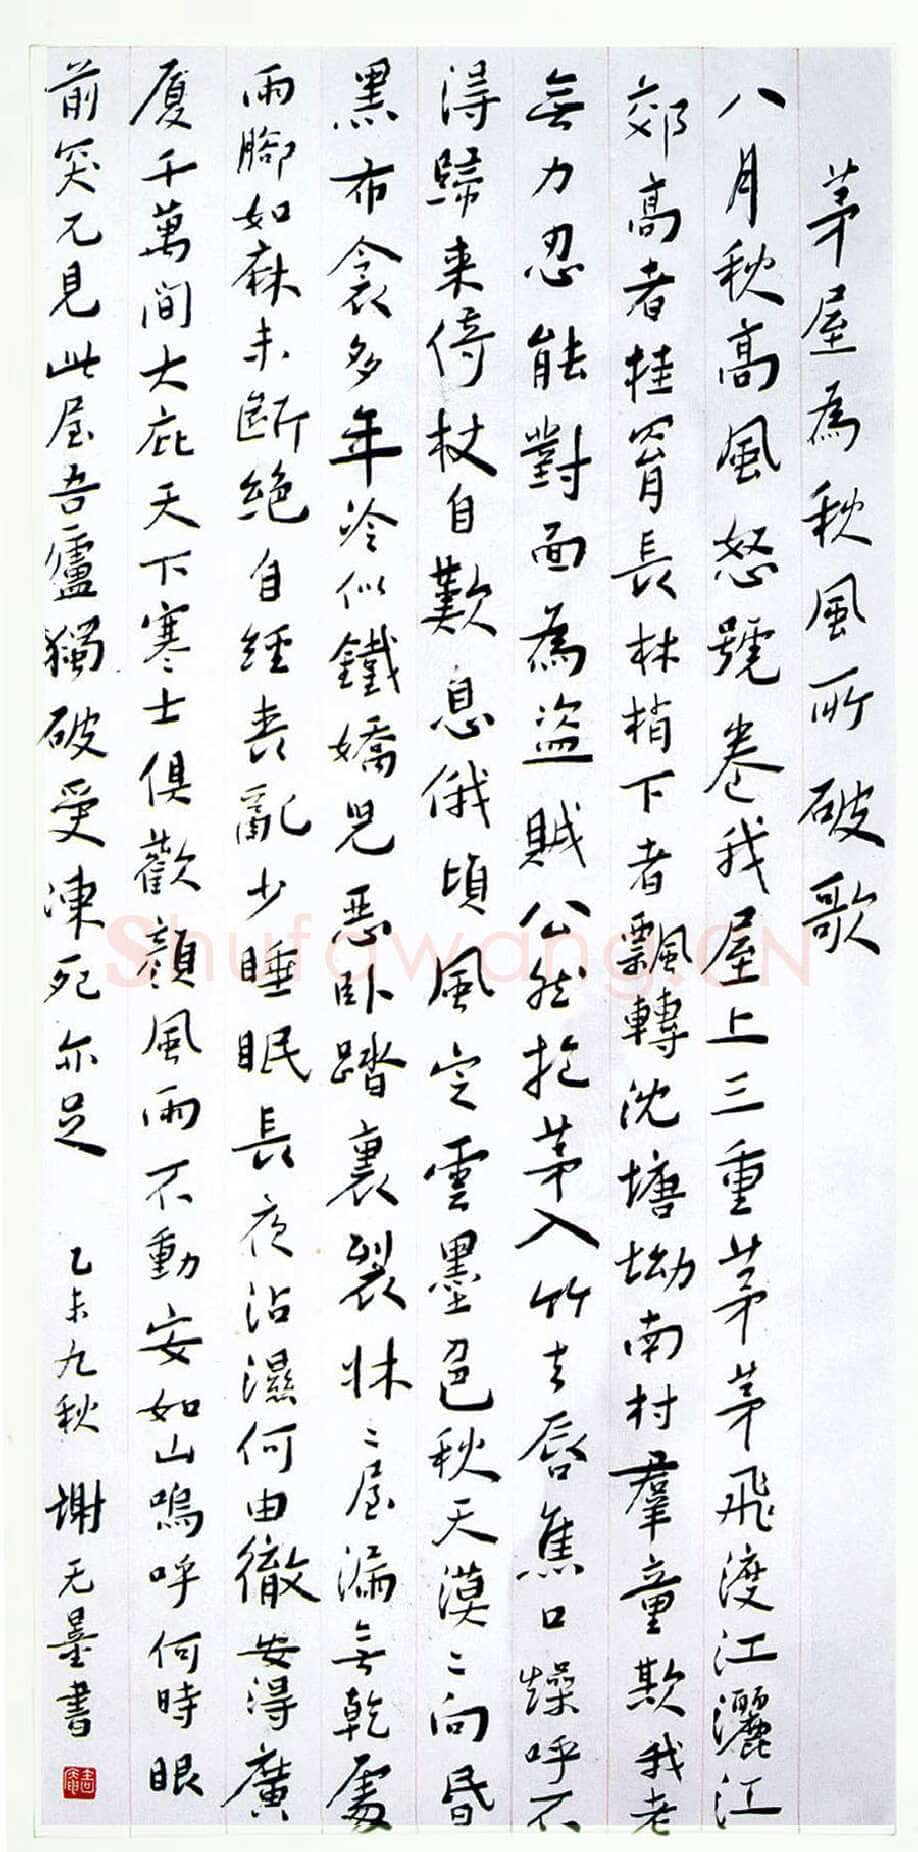 茅屋為秋風所破歌
八月秋高風怒號卷我屋上三重茅茅飛渡江灑江
郊高者挂罥長林梢下者飄轉沈塘坳南村羣童欺我老
無力忍能對面為盜賊公然抱茅入竹去唇焦口燥呼不
得歸来倚杖自歎息俄頃風定雲墨色秋天漠〻向昏
黑布衾多年冷似鐵嬌兒恶卧踏裏裂牀〻屋漏無乾處
雨腳如麻未斷絕自經喪亂少睡眠長夜沾濕何由徹安得廣
厦千萬间大庇天下寒士俱歡顏風雨不動安如山嗚呼何時眼
前突兀見此屋吾廬獨破受凍死亦足
乙未九秋 謝无墨書
Shufawang.CN